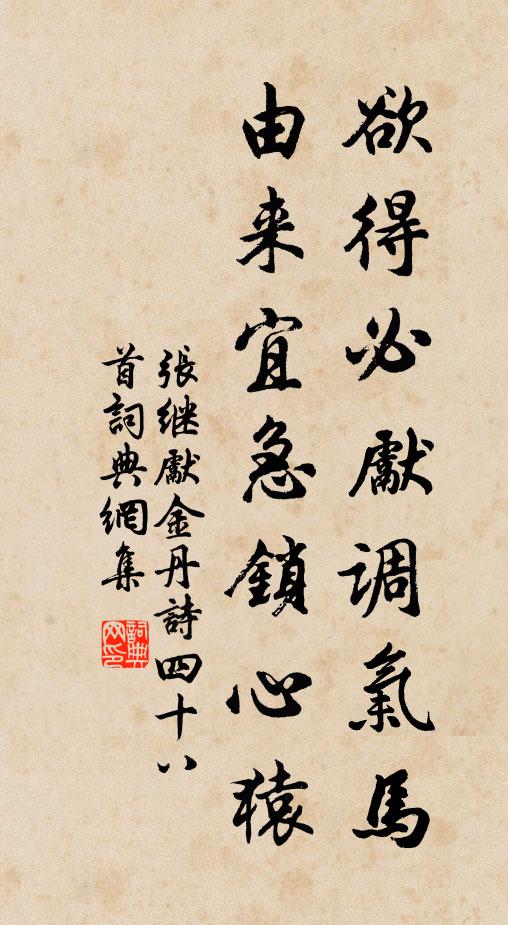 欲得必獻调氣馬
由来宜急鎖心猿
張继獻金丹詩四十八
首詞典網集
詞典
网印